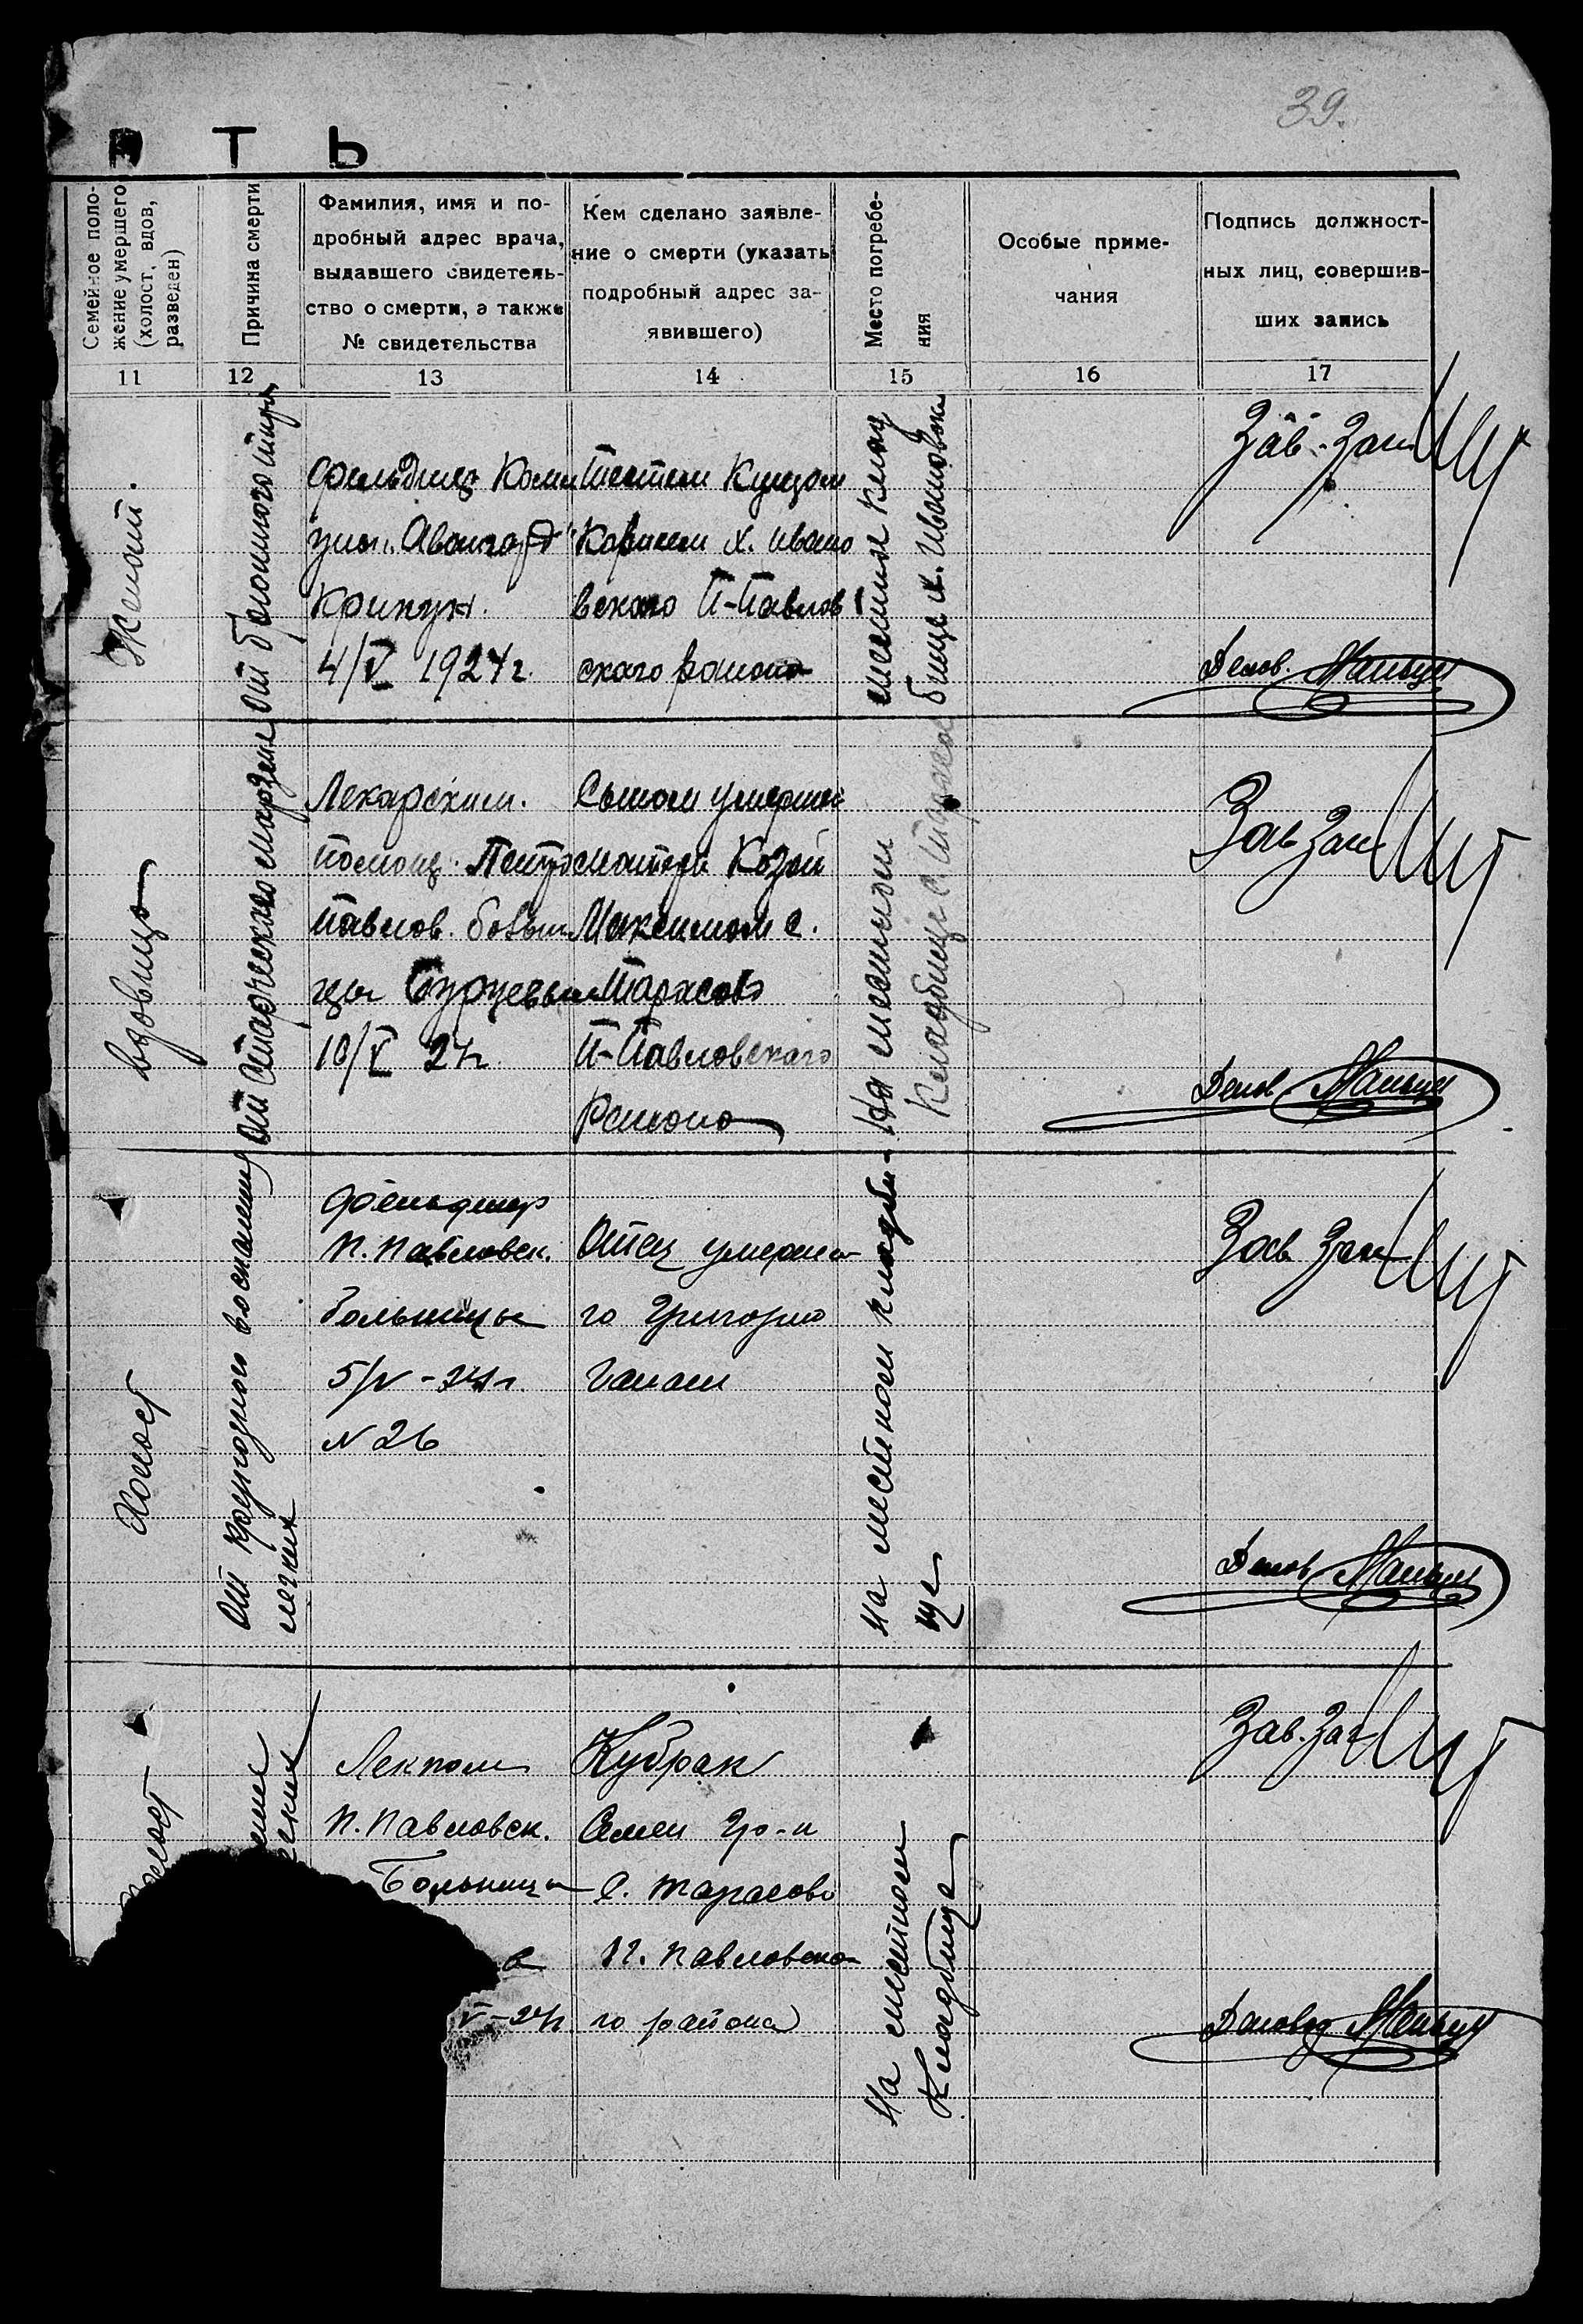 39.
Т Ь
Семейное поло-
жение умершего
(холост, вдов,
разведен)
Причина смерти
Фамилия, имя и по-
дробный адрес врача,
выдавшего свидетель-
ство о смерти, а также
№ свидетельства
Кем сделано заявле-
ние о смерти (указать
подробный адрес за-
явившего)
Место погребе-
ния
Особые приме-
чания
Подпись должност-
ных лиц, совершив-
ших запись
11
12
13
14
15
16
17
Женат.
От брюшного тифа
4/V 1924 г.
х. Ивано
вского П-Павлов
ского района
местное клад
бище х. Ивановка
Зав. Заг
Делов.
вдовица
От старческого маразма
Лекарским.
помощ. Петро
Павлов. больн
цы
10/V 24 г.
Сыном умершей
Козой
Максимом с.
Тарасовка
П-Павловского
Района
На местном
Кладбище с. Тарасов
Зав Заг
Делов
Холост
От крупозного воспаления
легких
Фельдшер
П. Павловск.
больницы
5/V-24 г.
N 26
Отец умерше
го Григорий
На местном кладби-
ще
Зав Заг
Делов
Лекпом
П. Павловск.
Больницы
V-24 г.
Кубрак
Семен Гр-н
с. Тарасовки
П. Павловско
го района
На местном
Кладбище
Зав. Заг
Деловод